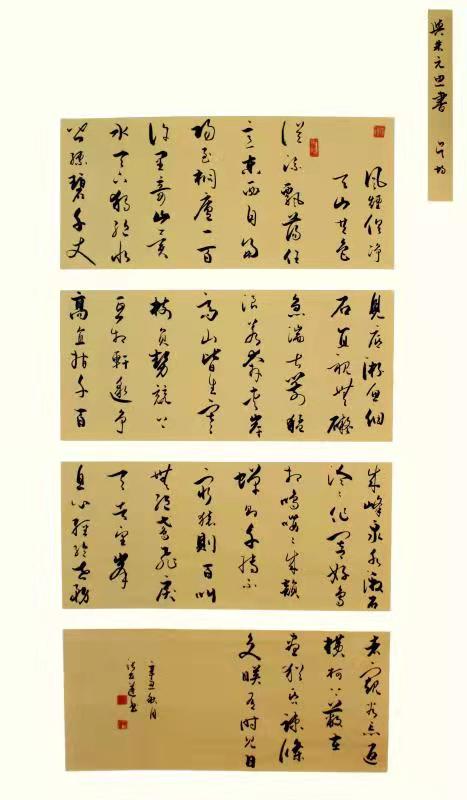 與朱元思書 吴均
風煙俱淨
天山共色
從流飄蕩任
意東西自富
陽至桐廬一百
許里奇山異
水天下獨絕水
皆縹碧千丈
見底游魚細
石直視無礙
急湍甚箭猛
浪若奔夾岸
高山皆生寒
樹負勢競上
互相軒邈爭
高直指千百
成峰泉水激石
泠〻作響好鳥
相鳴嚶〻成韻
蟬則千轉不
窮猿則百叫
無絕鳶飛戾
天者望峯
息心經綸世務
者窺谷忘返
橫柯上蔽在
晝猶昏疎條
交映有時見日
辛丑秋月